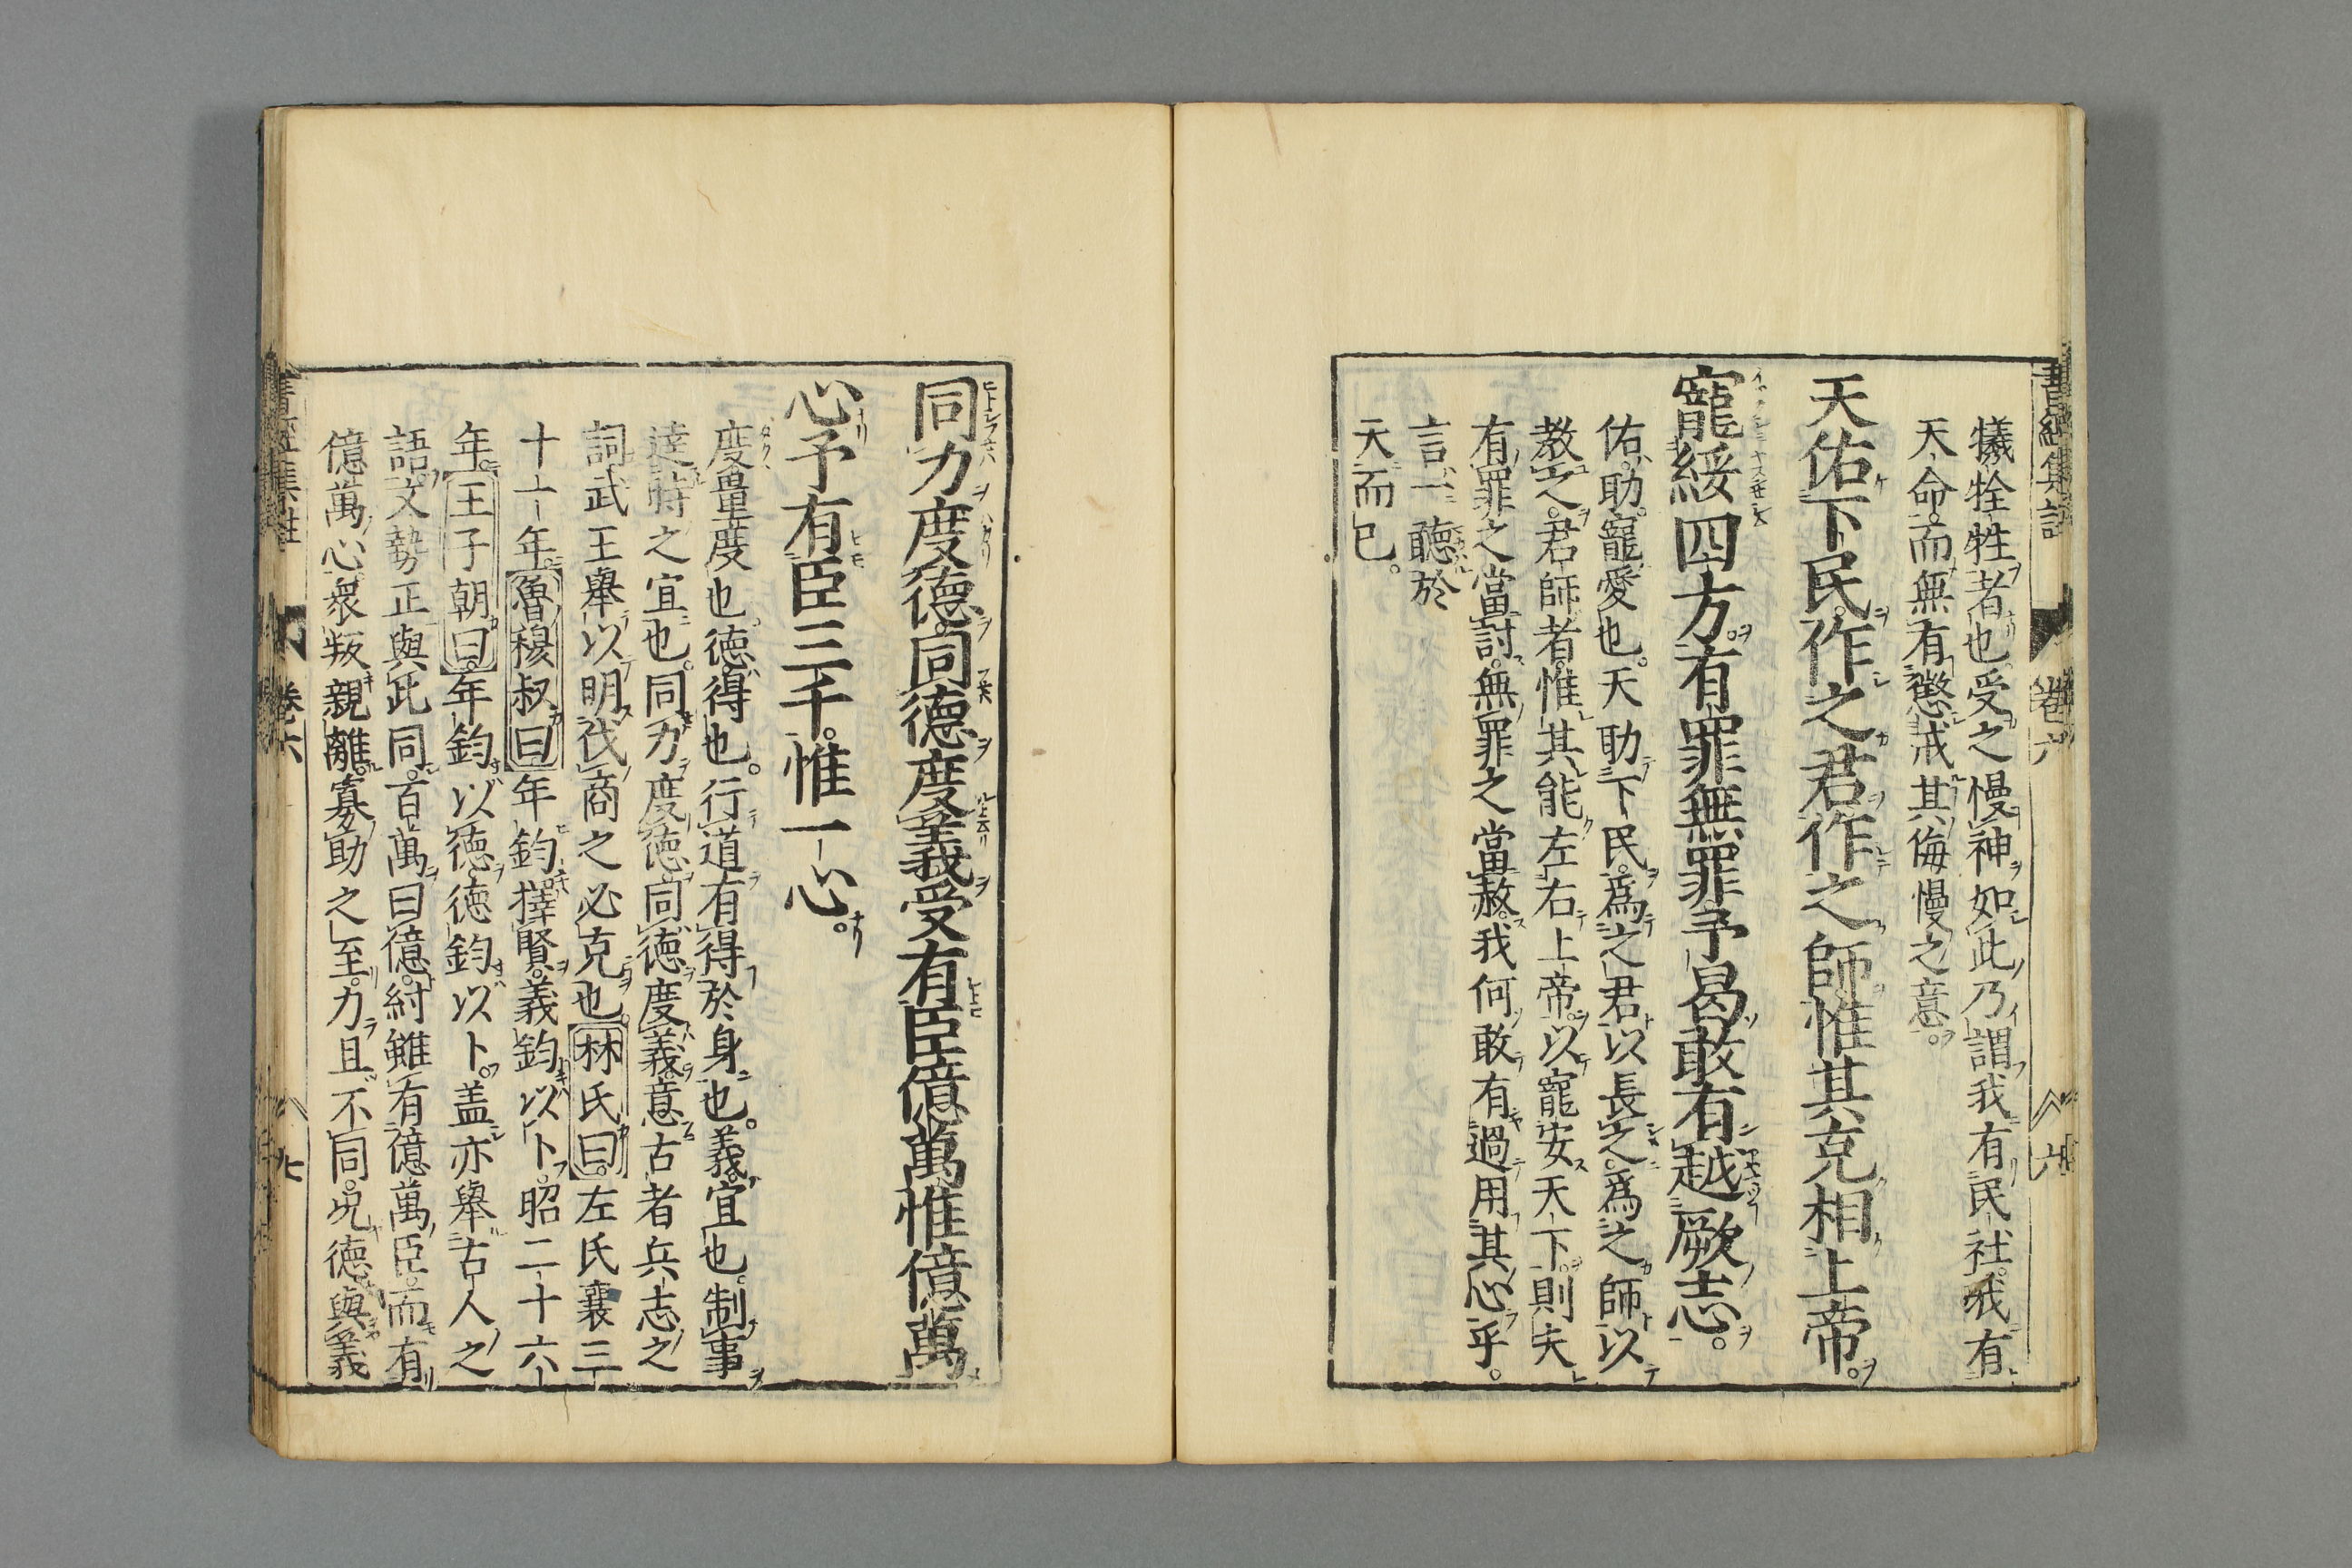 書經集註 卷六 六
犧牷牲者也受之慢神如此乃謂我有民社我有
天命而無有懲戒其侮慢之意
天佑下民作之君作之師惟其克相上帝
寵綏四方有罪無罪予曷敢有越厥志
佑助寵愛也天助下民爲之君以長之爲之師以
教之君師者惟其能左右上帝以寵安天下則夫
有罪之當討無罪之當赦我何敢有過用其心乎
言一聽於
天而已
同力度德同德度義受有臣億萬惟億萬
心予有臣三千惟一心
度量度也德得也行道有得於身也義宜也制事
達時之宜也同力度德同德度義意古者兵志之
詞武王舉以明伐商之必克也林氏曰左氏襄三
十一年魯穆叔曰年鈞擇賢義鈞以卜昭二十六
年王子朝曰年鈞以德德鈞以卜盖亦舉古人之
語文勢正與此同百萬曰億紂雖有億萬臣而有
億萬心衆叛親離寡助之至力且不同况德與義
書經集註 卷六 七